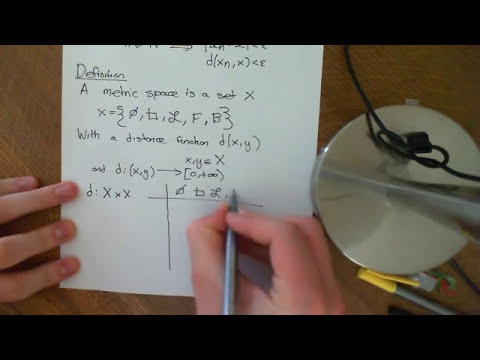 d(xn, x) < ε
Definition
A metric space is a set X
X = {ø, ㄣ, ℒ, F, B}
With a distance function d(x,y)
x,y ∈ X
and d:(x,y) → [0,+∞)
d: X × X